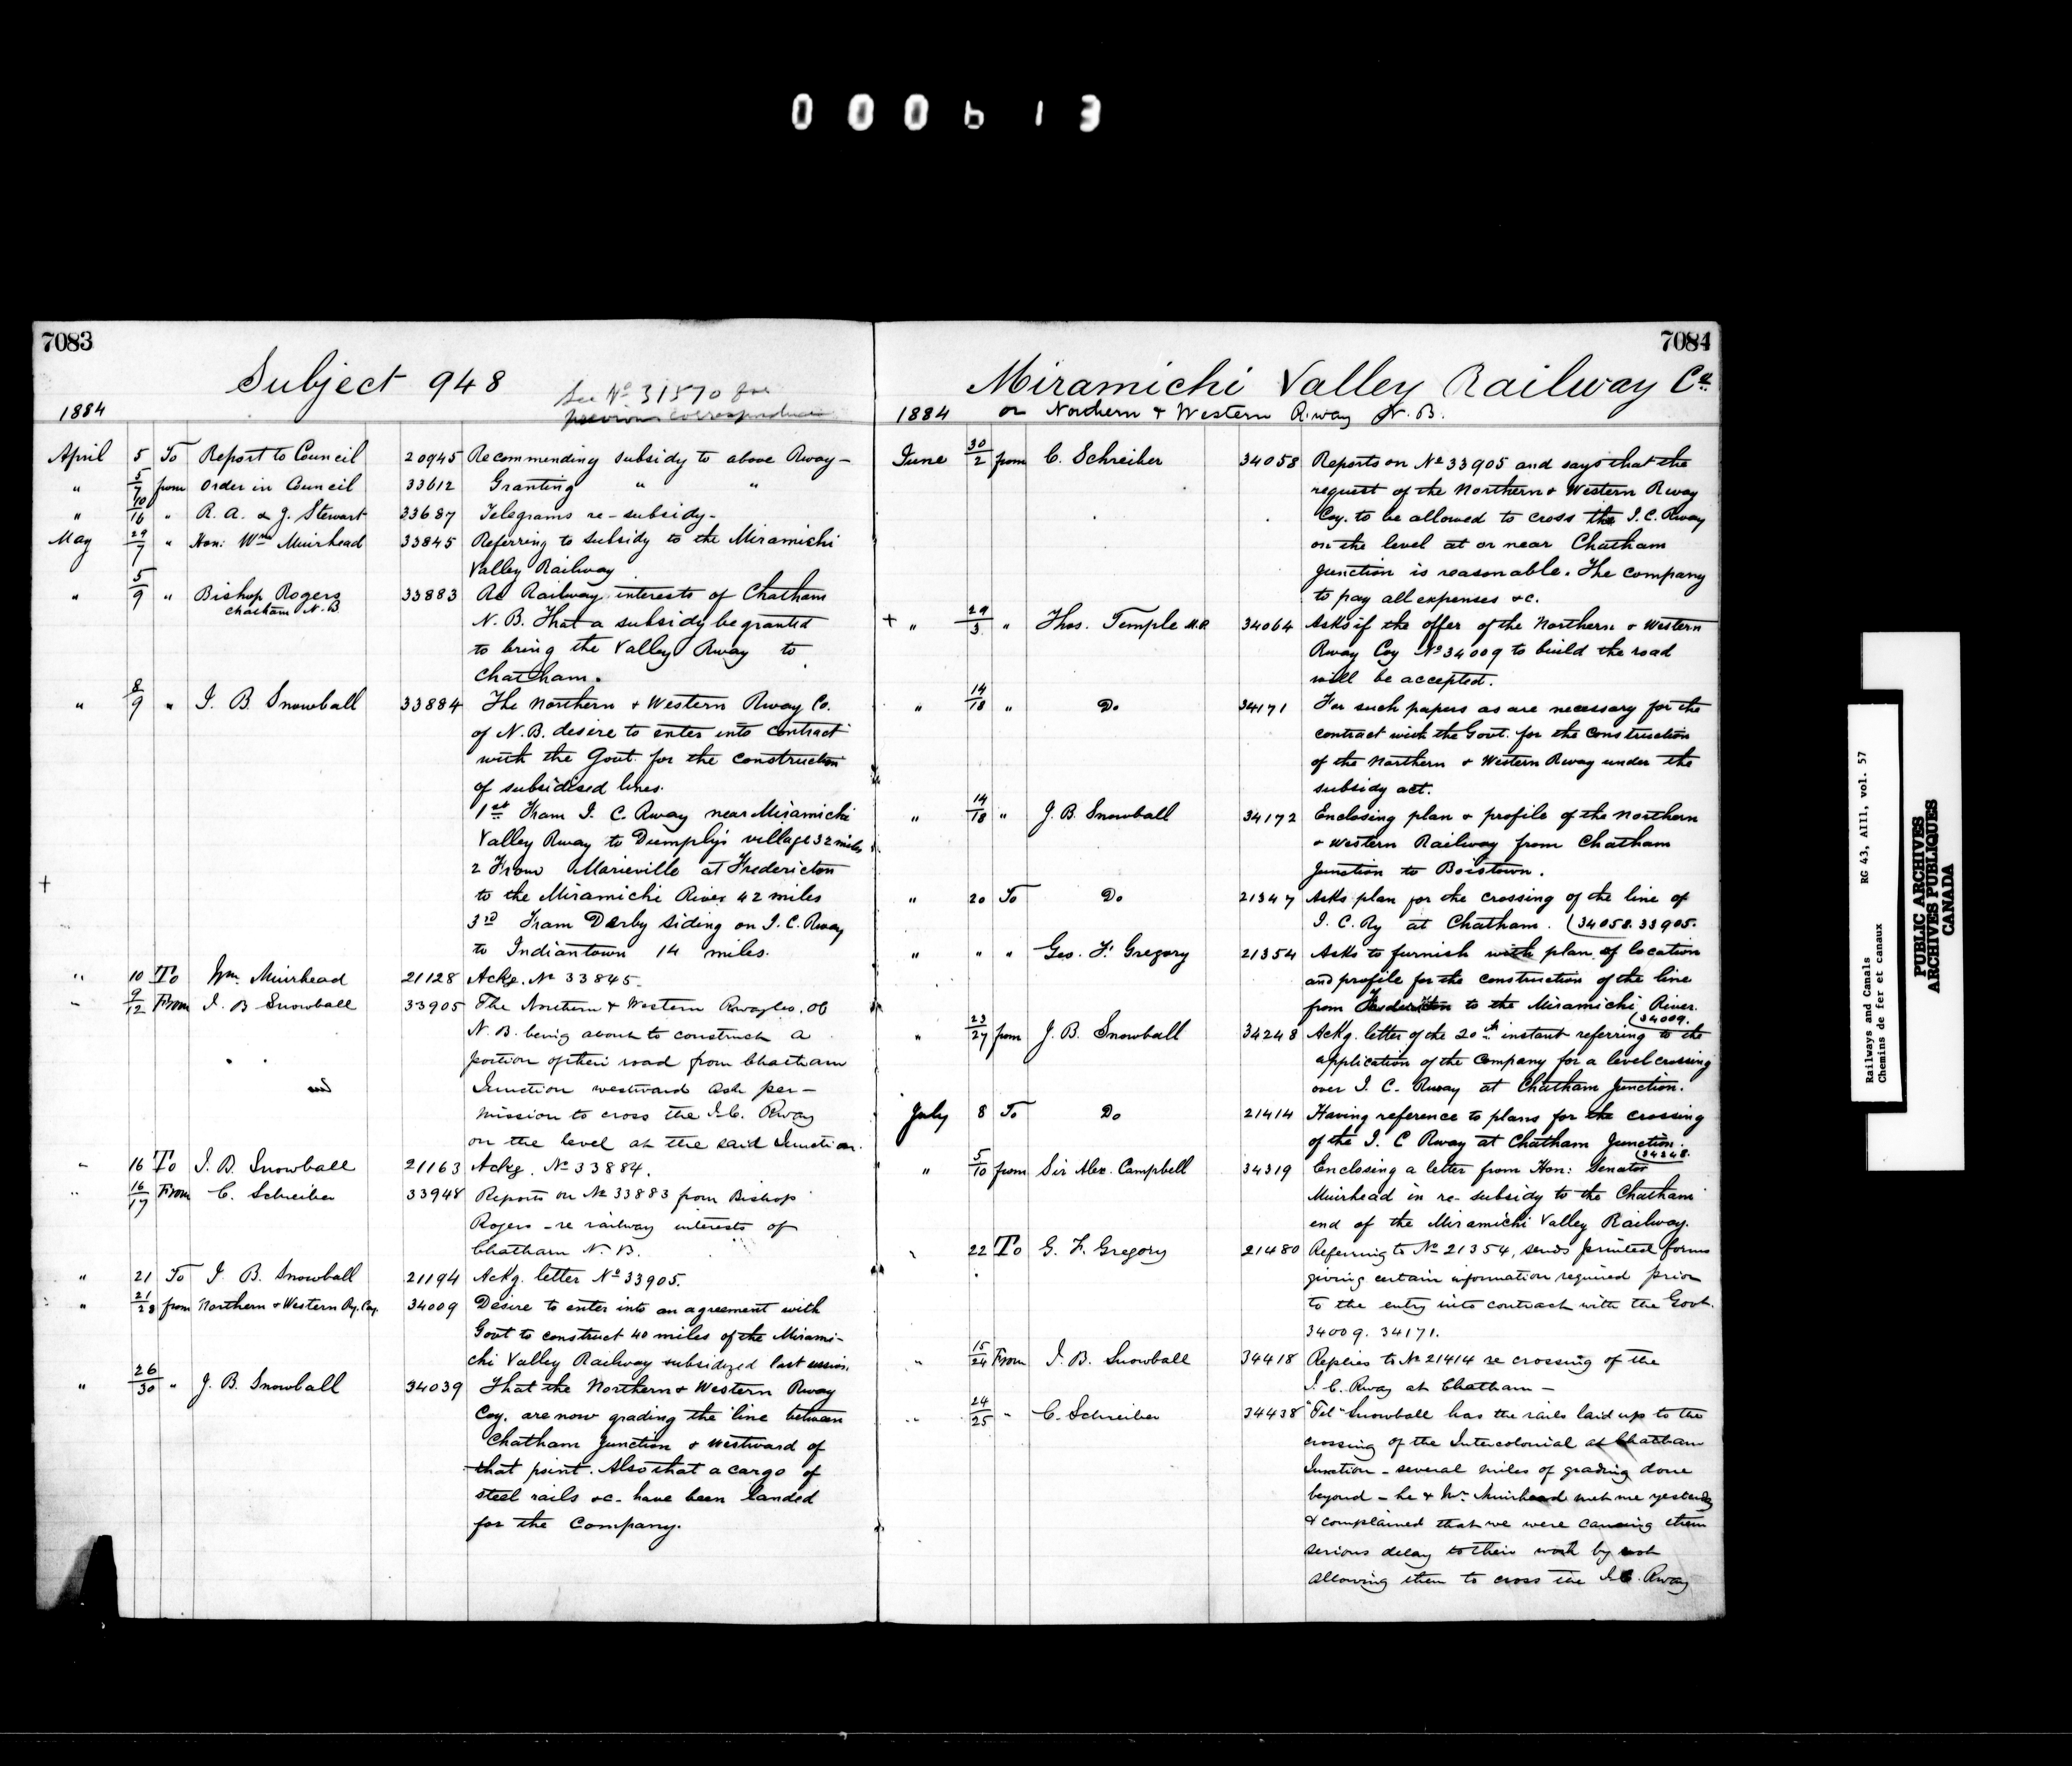 000613
7083
Subject 948
See No 31570 for
previous correspondence
1884
April 5 To Report to Council 20945 Recommending subsidy to above Rway -
" 5/7 from Order in Council 33612 Granting " "
" 10/16 " R. A. & J. Stewart 33687 Telegrams re - subsidy -
May 29/7 " Hon: Wm Muirhead 33845 Referring to subsidy to the Miramichi
Valley Railway
" 5/9 " Bishop Rogers 33883 Re Railway interests of Chatham
Chatham N.B
N. B. That a subsidy be granted
to bring the Valley Rway to
Chatham.
" 8/9 " J. B. Snowball 33884 The Northern & Western Rway Co.
of N.B. desire to enter into contract
with the Govt. for the construction
of subsidised lines.
1st From I. C. Rway near Miramichi
Valley Rway to Dumphy's village 32 miles
2 From Marieville at Fredericton
+ to the Miramichi River 42 miles
3rd From Derby Siding on I. C. Rway
to Indiantown 14 miles.
" 10 To Wm. Muirhead 21128 Ackg. No 33845.
" 9/12 From J. B Snowball 33905 The Northern & Western Rway Co. of
N. B. being about to construct a
portion of their road from Chatham
Junction westward ask per-
mission to cross the I.C. Rway
on the level at the said Junction.
" 16 To J. B. Snowball 21163 Ackg. No 33884.
" 16/17 From C. Schreiber 33948 Reports on No 33883 from Bishop
Rogers - re railway interests of
Chatham N. B.
" 21 To J. B. Snowball 21194 Ackg. letter No 33905.
" 21/28 from Northern & Western Ry. Coy. 34009 Desire to enter into an agreement with
Govt to construct 40 miles of the Mirami-
chi Valley Railway subsidized last session.
" 26/30 " J. B. Snowball 34039 That the Northern & Western Rway
Coy. are now grading the line between
Chatham Junction & westward of
that point. Also that a cargo of
steel rails &c. have been landed
for the Company.
7084
Miramichi Valley Railway Co.
or Northern & Western R.way N. B.
1884
June 30/2 from C. Schreiber 34058 Reports on No 33905 and says that the
request of the Northern & Western Rway
Coy. to be allowed to cross the I. C. Rway
on the level at or near Chatham
Junction is reasonable. The company
to pay all expenses &c.
+ " 29/3 " Thos. Temple M.P. 34064 Asks if the offer of the Northern & Western
Rway Coy No 34009 to build the road
will be accepted.
" 14/18 " Do 34171 For such papers as are necessary for the
contract with the Govt. for the construction
of the Northern & Western Rway under the
subsidy act.
" 14/18 " J. B. Snowball 34172 Enclosing plan & profile of the Northern
& Western Railway from Chatham
Junction to Boistown.
" 20 To Do 21347 Asks plan for the crossing of the line of
I. C. Ry at Chatham. (34058. 33905.
" " " Geo. F. Gregory 21354 Asks to furnish with plan of location
and profile for the construction of the line
from Fredericton to the Miramichi River.
(34009.
" 23/27 from J. B. Snowball 34248 Ackg. letter of the 20th instant referring to the
application of the Company for a level crossing
over I. C. Rway at Chatham Junction.
July 8 To Do 21414 Having reference to plans for the crossing
of the I. C Rway at Chatham Junction.
(34248.
" 5/10 from Sir Alex. Campbell 34319 Enclosing a letter from Hon: Senator
Muirhead in re- subsidy to the Chatham
end of the Miramichi Valley Railway.
" 22 To G. F. Gregory 21480 Referring to No 21354, sends printed forms
giving certain information required prior
to the entry into contract with the Govt.
34009. 34171.
" 15/24 From J. B. Snowball 34418 Replies to No 21414 re crossing of the
I. C. Rway at Chatham -
" 24/25 " C. Schreiber 34438 "Tel" Snowball has the rails laid up to the
crossing of the Intercolonial at Chatham
Junction - several miles of grading done
beyond - he & Mr Muirhead met me yesterday
& complained that we were causing them
serious delay to their work by not
allowing them to cross the I.C. Rway
Railways and Canals RG 43, AIII, vol. 57
Chemins de fer et canaux
PUBLIC ARCHIVES
ARCHIVES PUBLIQUES
CANADA